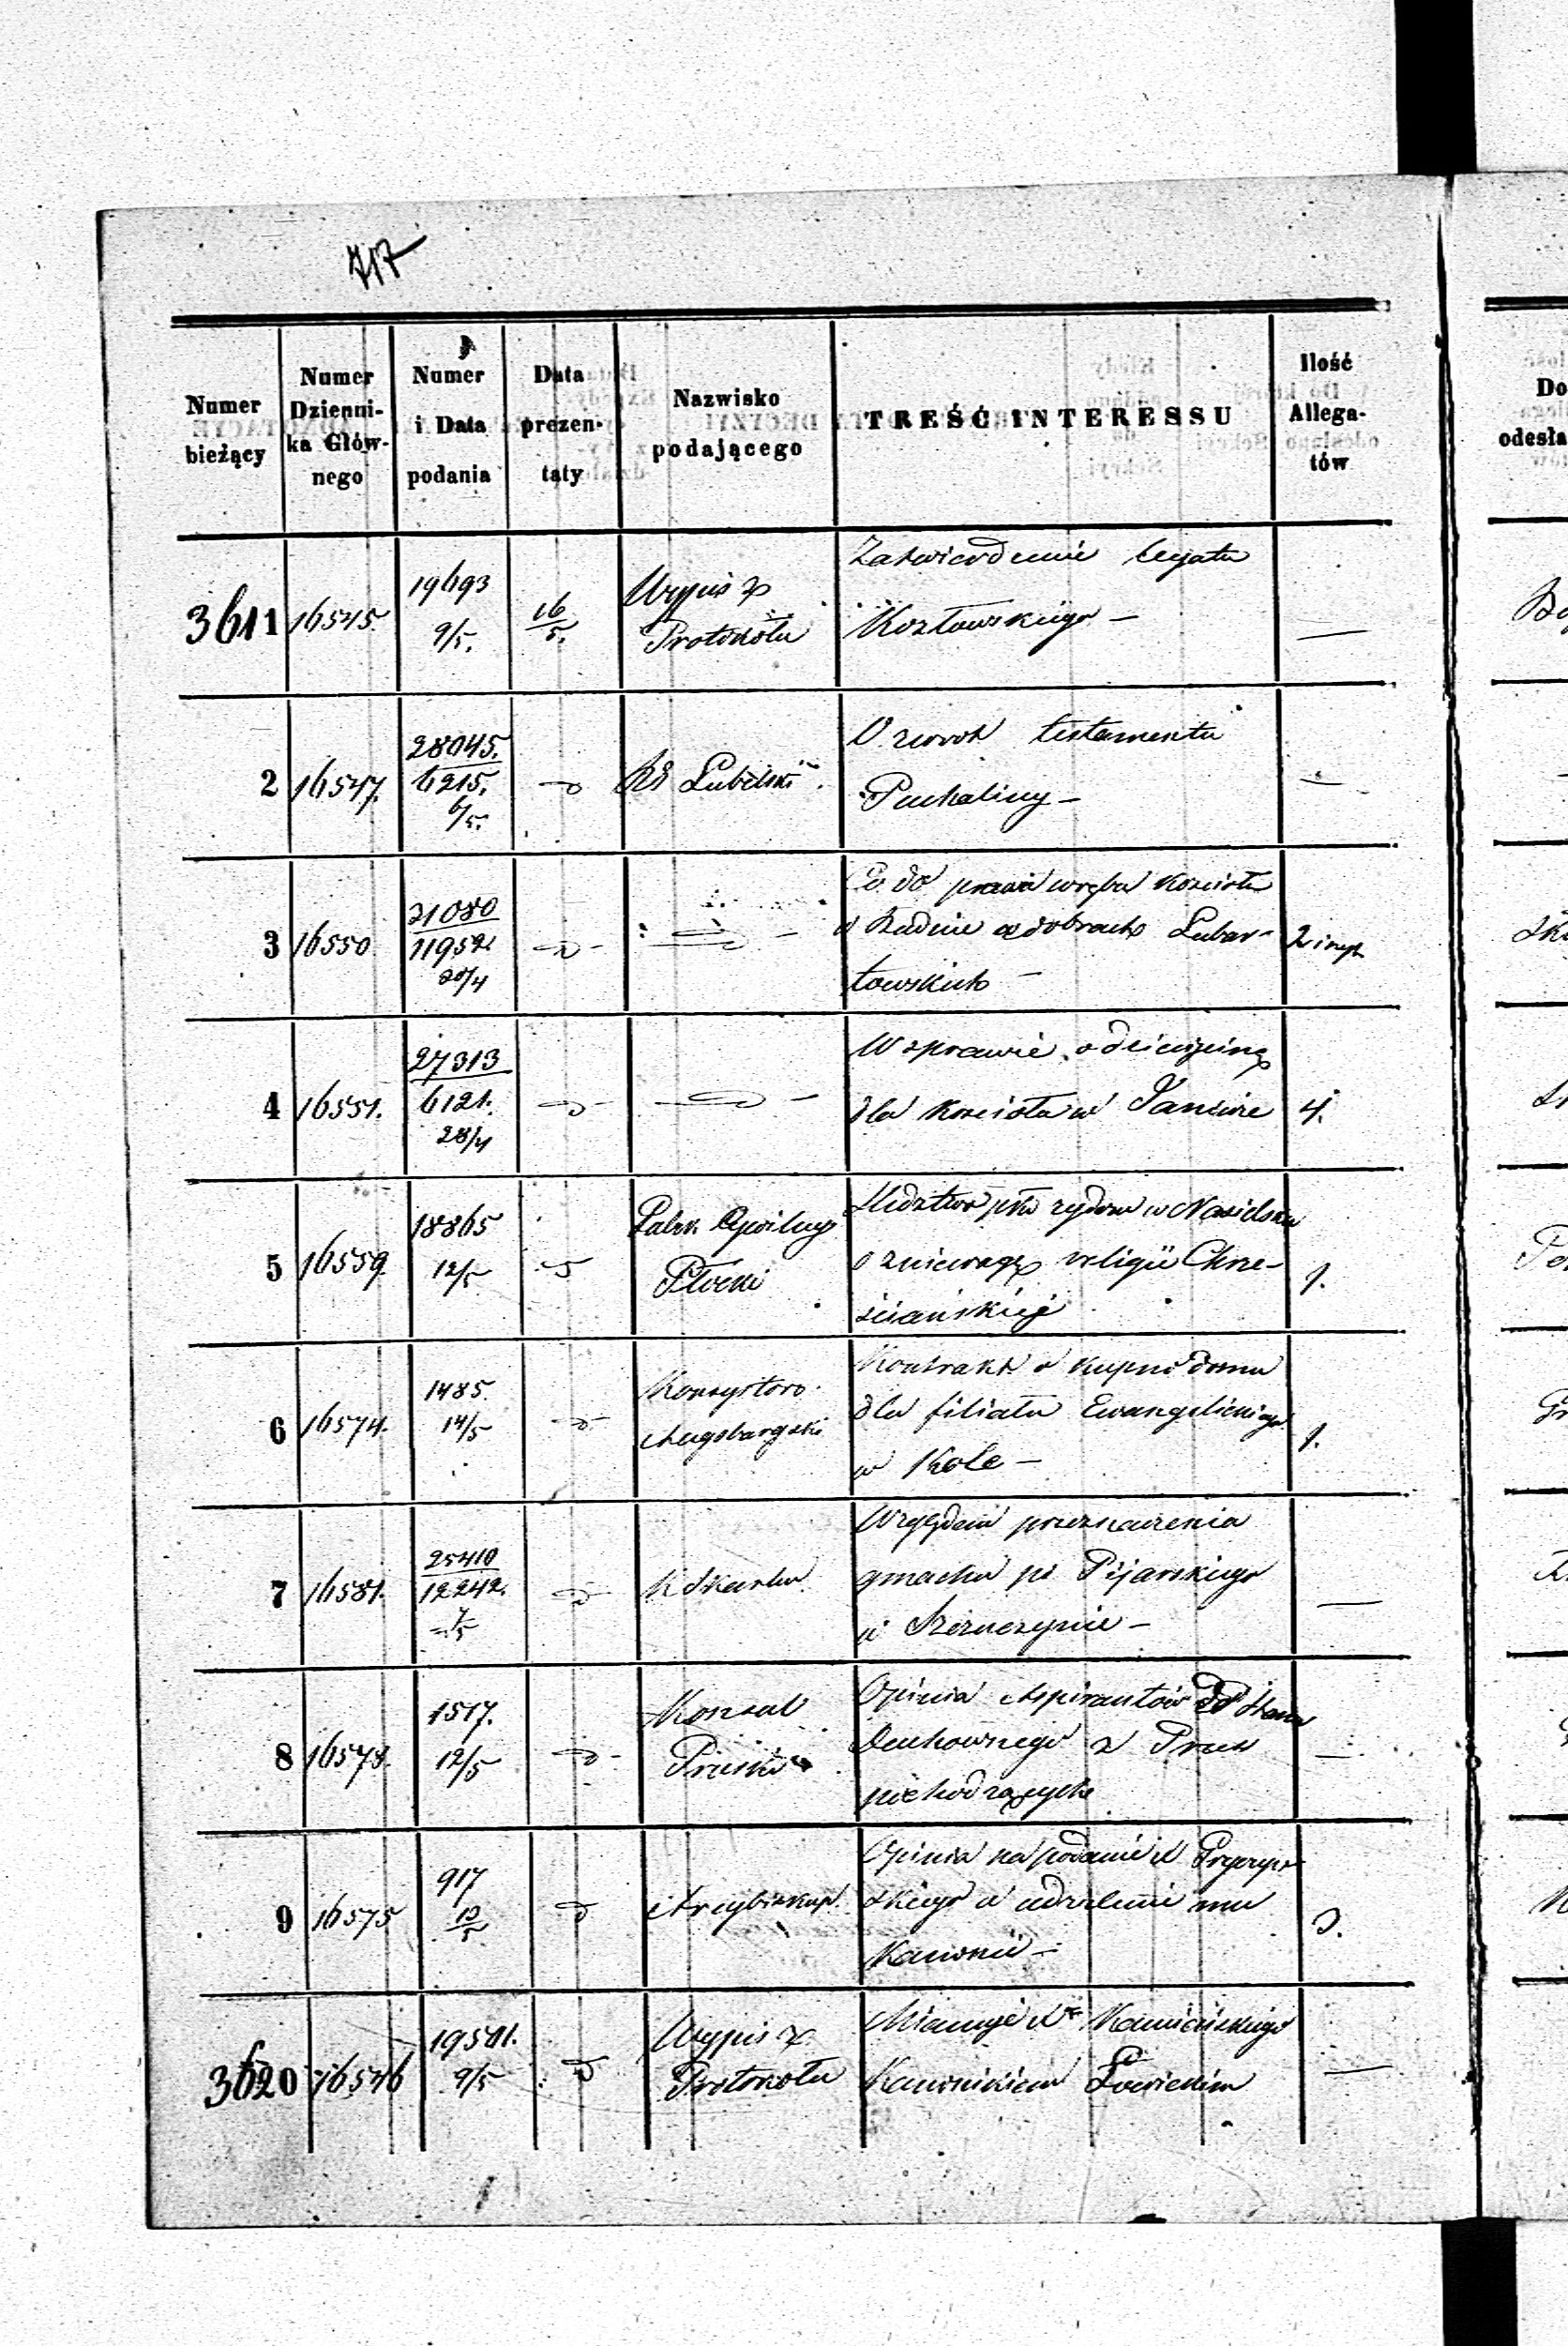 717
Numer bieżący | Numer Dzienni-ka Głów-nego | Numer i Data podania | Data prezen-taty | Nazwisko podającego | TREŚĆ INTERESSU | Ilość Allega-tów
3611 | 16545. | 19693 9/5. | 16/5. | Wypis z Protokołu | Zatwierdzenie legatu Kozłowskiego – | —
2 | 16547. | 28045. 6215. 6/5. | | RG Lubelski | testamentu Puchaliny – | —
3 | 16550 | 21080 11952 20/4 | | | Co do prawa wrębu Kościoła w Rudnie w dobrach Lubar-towskich – | 2
4 | 16551. | 27313 6121. 28/4 | | | W sprawie o dziesięcinę dla Kościoła w Janowie | 4.
5 | 16559. | 18865 12/5 | | Płocki | Śledztwo pko żydom w Nasielsku o zniewagę religii Chrze-ściańskiej | 1.
6 | 16574. | 1485. 14/5 | | Konsystorz Augsburgski | Kontrakt o kupno domu dla filiału Ewangelickiego w Kole – | 1.
7 | 16581. | 25410 12242. 7/5 | | K Skarbu | Względem przeznaczenia gmachu po Pijarskiego w Szczuczynie – | —
8 | 16578. | 1517. 12/5 | | Konsul Pruski | Opinia Aspirantów do stanu Duchownego z Prus pochodzących | —
9 | 16575 | 917 | | Arcybiskup. | Opinia na podanie X o udzielenie mu Kanonii – | 3.
3620 | 16576 | 19501. 9/5 | | Wypis z Protokołu | Mianuje Xa Kamieńskiego Kanonikiem Łowickim | —
Do
odesła